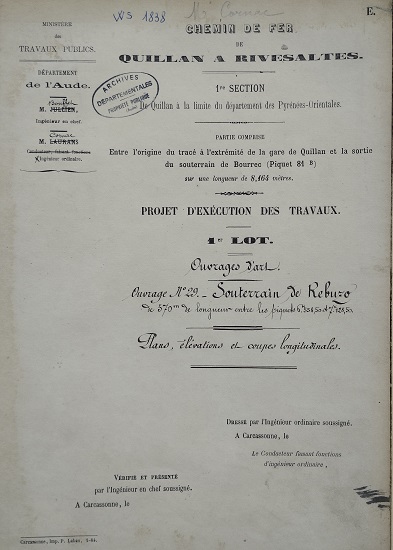 WS 1838
Mr Cornac
E.
MINISTÈRE
des
TRAVAUX PUBLICS.
DÉPARTEMENT
de l'Aude.
M. JULLIEN,
Ingénieur en chef.
Cornac
M. LAURANS
Ingénieur ordinaire.
ARCHIVES
DÉPARTEMENTALES
PROPRIÉTÉ PUBLIQUE
CHEMIN DE FER
DE
QUILLAN A RIVESALTES.
1re SECTION
De Quillan à la limite du département des Pyrénées-Orientales.
PARTIE COMPRISE
Entre l'origine du tracé à l'extrémité de la gare de Quillan et la sortie
du souterrain de Bourrec (Piquet 81 B)
sur une longueur de 8,164 mètres.
PROJET D'EXÉCUTION DES TRAVAUX.
1er LOT.
Ouvrages d'art.
Ouvrage No 29. - Souterrain de Rebuzo
de 570m de longueur entre les piquets
Plans, élévations et coupes longitudinales.
DRESSÉ par l'Ingénieur ordinaire soussigné.
A Carcassonne, le
Le Conducteur faisant fonctions
d'ingénieur ordinaire,
VÉRIFIÉ ET PRÉSENTÉ
par l'Ingénieur en chef soussigné.
A Carcassonne, le
Carcassonne, Imp. P. Labau,